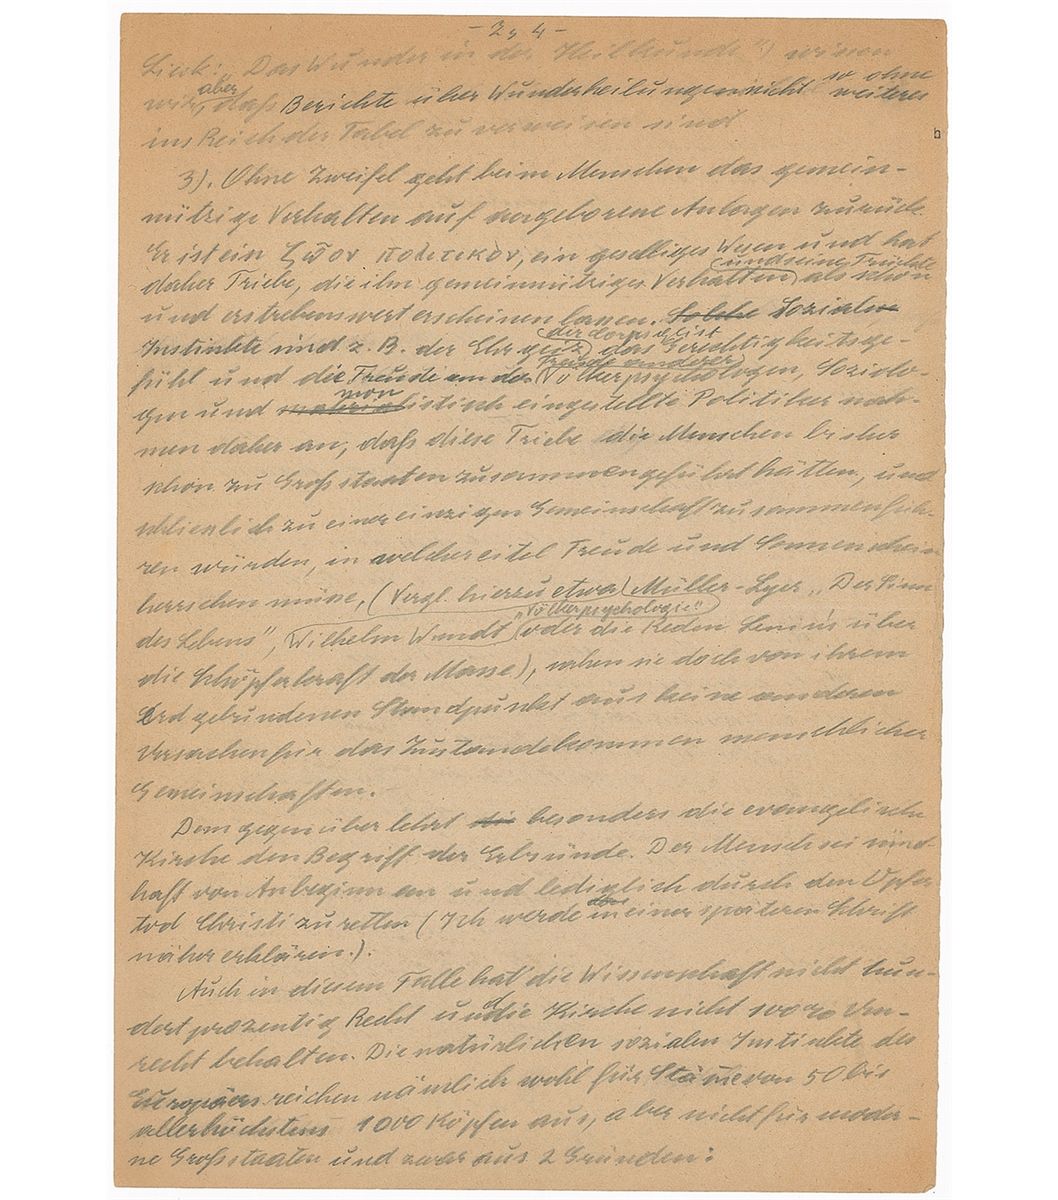 - 2 4 -
Liek: „Das Wunder in der Heilkunde") wissen
wir, aber daß Berichte über Wunderheilungen nicht so ohne weiteres
ins Reich der Fabel zu verweisen sind
3). Ohne Zweifel geht beim Menschen das gemein-
nützige Verhalten auf angeborene Anlagen zurück.
Er ist ein ζῷον πολιτικὸν, ein geselliges Wesen und hat
daher Triebe, die ihm gemeinnütziges Verhalten und seine Früchte als schön
und erstrebenswert erscheinen lassen. Solche Sozialen
Instinkte sind z. B. der Ehrgeiz, das Gerechtigkeitsge-
fühl und die Freude an der Freude anderer Völkerpsychologen, Soziolo-
gen und monistisch eingestellte Politiker neh-
men daher an, daß diese Triebe die Menschen bisher
schon zu Großstaaten zusammengeführt hätten, und
schliesslich zu einer einzigen Gemeinschaft zusammenfüh-
ren würden, in welcher eitel Freude und Sonnenschein
herrschen müsse, (Vergl. hierzu etwa Müller-Lyer „Der Sinn
des Lebens", Wilhelm Wundt „Völkerpsychologie" oder die Reden Lenins über
die Schöpferkraft der Masse), sehen sie doch von ihrem
Erd gebundenen Standpunkt aus keine anderen
Ursachen für das Zustandekommen menschlicher
Gemeinschaften.
Dem gegenüber lehrt die besonders die evangelische
Kirche den Begriff der Erbsünde. Der Mensch sei sünd-
haft von Anbeginn an und lediglich durch den Opfer
tod Christi zu retten (Ich werde das in einer späteren Schrift
näher erklären.).
Auch in diesem Falle hat die Wissenschaft nicht hun-
dert prozentig Recht und die Kirche nicht 100% Un-
recht behalten. Die natürlichen sozialen Instinkte des
Europäers reichen nämlich wohl für Stämme von 50 bis
allerhöchstens 1000 Köpfen aus, aber nicht für moder-
ne Großstaaten und zwar aus 2 Gründen: